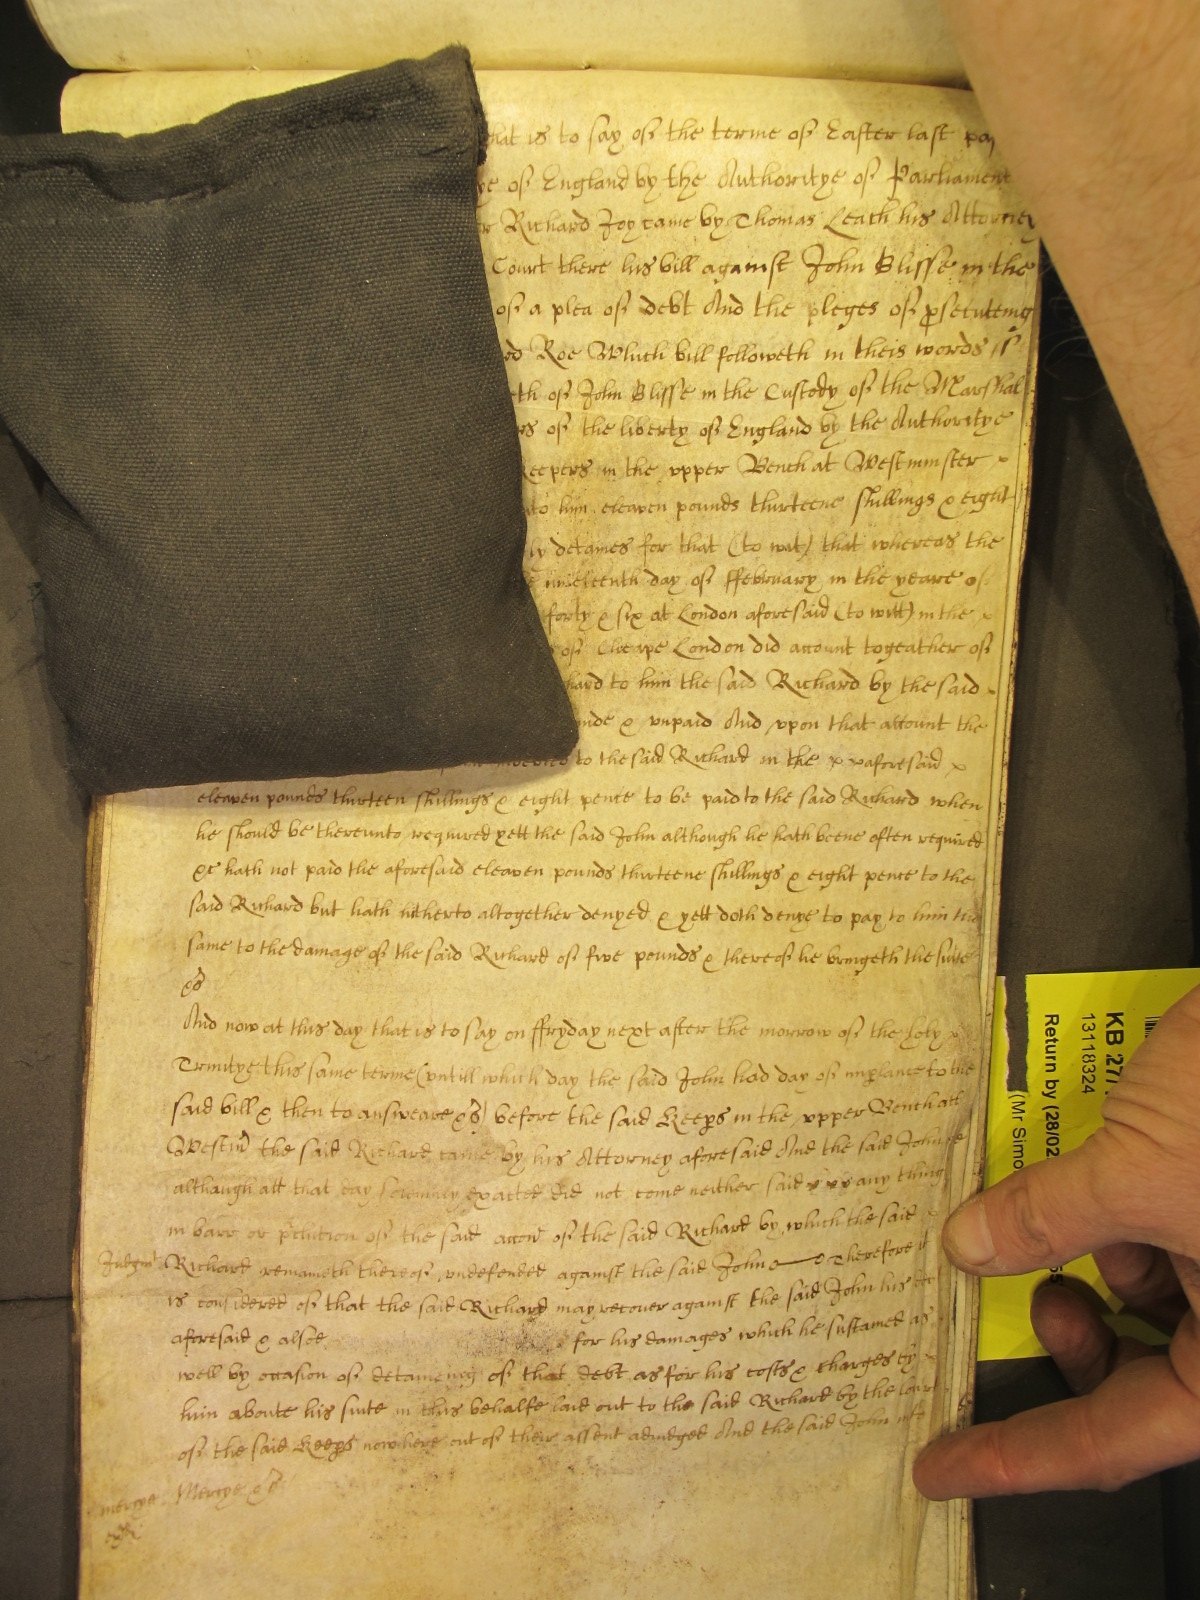 hat is to say of the terme of Easter last pa
ye of England by the Authoritye of Parliament
Richard Joy came by Thomas Leach his Attorney
Court there his bill against John Blisse in the
of a plea of debt And the pleges of prosecuteing
Roe Which bill followeth in theis words
eth of John Blisse in the Custody of the Marshal
of the liberty of England by the Authoritye
keepers in the upper Bench at Westminster
to him eleaven pounds thirteene shillings & eight
ly detaines for that (to wit) that whereas the
nineteenth day of ffebruary in the yeare of
forty & six at London aforesaid (to witt) in the
of Cheape London did account togeather of
hard to him the said Richard by the said
& unpaid And upon that account the
to the said Richard in the aforesaid
eleaven pounds thirteen shillings & eight pence to be paid to the said Richard when
he should be thereunto required yett the said John although he hath beene often required
&c hath not paid the aforesaid eleaven pounds thirteene shillings & eight pence to the
said Richard but hath hitherto altogether denyed & yett doth denye to pay to him the
same to the damage of the said Richard of five pounds & thereof he bringeth the suite
&c
And now at this day that is to say on ffryday next after the morrow of the holy
Trinitye this same terme (untill which day the said John had day of imparlance to the
said bill & then to answeare &c) before the said Keeps in the upper Bench att
Westm the said Richard came by his Attorney aforesaid And the said John
although att that day solemnly exacted did not come neither said any thing
in barr or p'clusion of the said accon of the said Richard by which the said
Judgmt Richard remaineth thereof undefended against the said John Therefore it
is considered of that the said Richard may recover against the said John his
aforesaid & alsoe for his damages which he sustained as
well by occasion of detaineing of that debt as for his costs & charges by
him aboute his suite in this behalfe laid out to the said Richard by the Court
of the said Keeps now here out of their assent adiudged And the said John
mercye Mercye &c